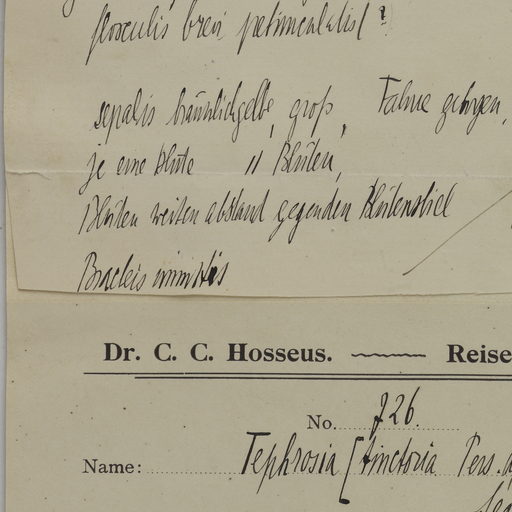 flosculis brevi petunculatis (?
sepalis bräunlichgelbe, groß, Fahne gebogen,
je eine Blüte " Blüten,
Blüten weiten abstand gegen den Blütenstiel
Bracteis
Dr. C. C. Hosseus. Reise
No. 726.
Name: Tephrosia [tinctoria Pers.